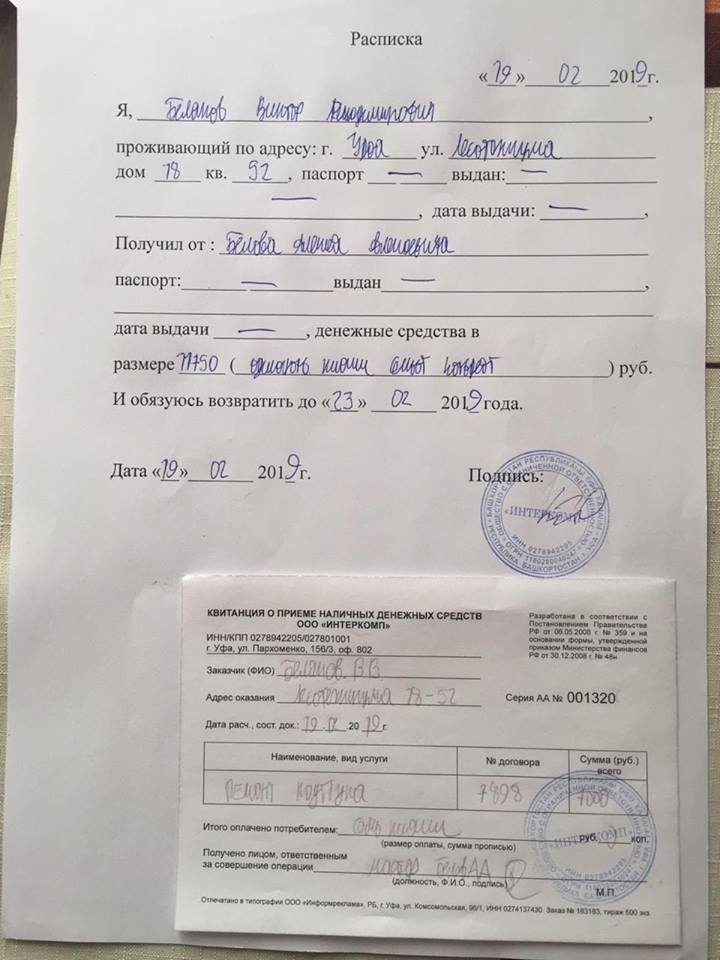 Расписка
«19» 02 2019г.
Я, Белянов Виктор Владимирович,
проживающий по адресу: г. Уфа ул. Лесотехникума
дом 18 кв. 52, паспорт — выдан: —
—, дата выдачи: —,
Получил от : Белова
паспорт: — выдан —,
дата выдачи —, денежные средства в
размере 11750 ( одинадцать тысяч семьсот ) руб.
И обязуюсь возвратить до «23» 02 2019 года.
Дата «19» 02 2019г. Подпись:
«ИНТЕРКОМП»
КВИТАНЦИЯ О ПРИЕМЕ НАЛИЧНЫХ ДЕНЕЖНЫХ СРЕДСТВ
ООО «ИНТЕРКОМП»
ИНН/КПП 0278942205/027801001
г. Уфа, ул. Пархоменко, 156/3, оф. 802
Разработана в соответствии с
Постановлением Правительства
РФ от 06.05.2008 г. № 359 и на
основании формы, утвержденной
приказом Министерства финансов
РФ от 30.12.2008 г. № 48н
Заказчик (ФИО) Белянов. В В
Адрес оказания Лесотехникума 18-52
Серия АА № 001320
Дата расч., сост. док.: 19. 2019г.
Наименование, вид услуги № договора Сумма (руб.) всего
Ремонт ноутбука 7898 7000
Итого оплачено потребителем: семь тысяч руб. коп.
(размер оплаты, сумма прописью)
Получено лицом, ответственным
за совершение операции мастер Белов АА
(должность, Ф.И.О., подпись)
М.П.
Отпечатано в типографии ООО «Информреклама», РБ, г. Уфа, ул. Комсомольская, 96/1, ИНН 0274137430. Заказ № 183183, тираж 500 экз.